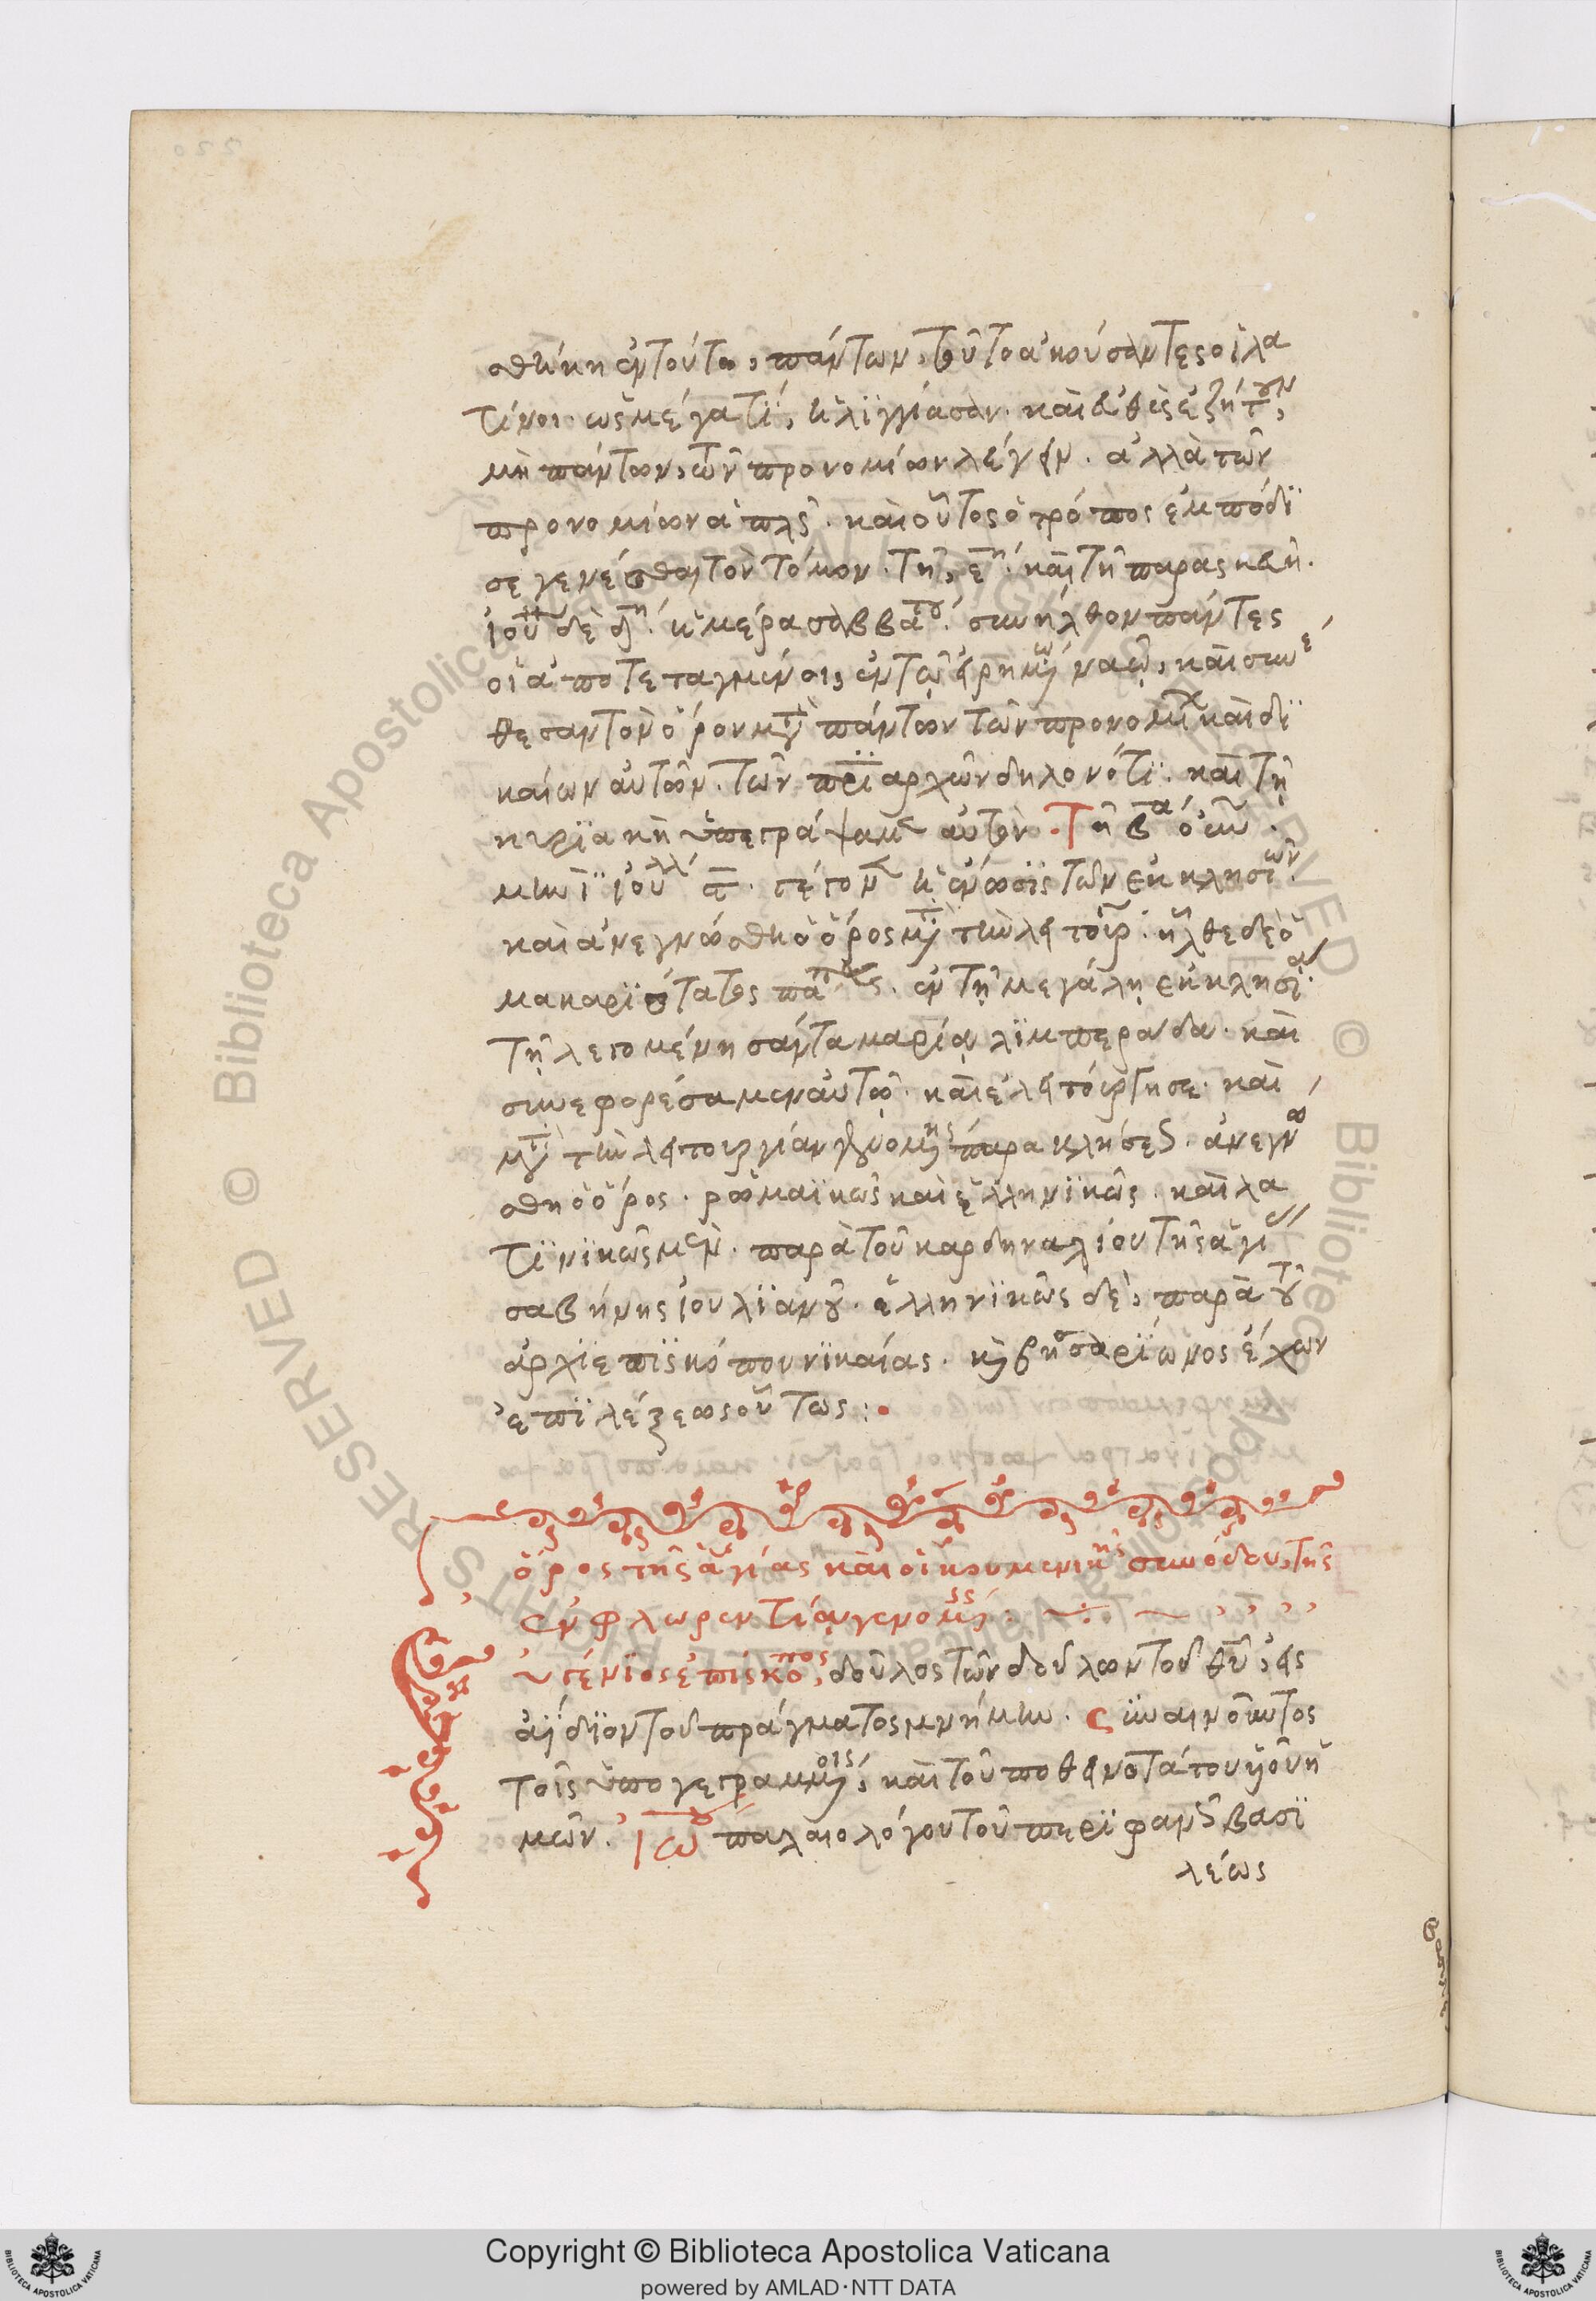 σθήκη ἐν τούτω, πάντων, τοῦτο ἀκούσαντες οἱ λα
τίνοι. ὡς μέγα τϊ, ἠλϊγγίασαν. καὶ εὐθὺς ἐζήτουν,
μὴ πάντων, τῶν προνομίων λέγειν. ἀλλὰ τῶν
προνομίων ἁπλῶς. καὶ οὗτος ὁ τρόπος ἐμπόδϊ
σε γενέσθαι τὸν τόμον. τῆ, ε^η. καὶ τῆ παρασκευῆ.
ἰουν δὲ δ^η. ἡμέρα σαββάτου. συνῆλθον πάντες
οἱ ἀποτεταγμένοι, ἐν τῷ εἰρημένω ναῶ, καὶ συνέ
θεσαν τὸν ὅρον μετὰ πάντων τῶν προνομί καὶ δϊ
καίων αὐτῶν. τῶν πρϊαρχῶν δηλονότϊ. καὶ τῆ
κυρϊακῆ ὑπεγράψαμεν αὐτόν. Τῆ β^α οὖν.
μηνϊ ἰουλλ. γέγονεν ἡ ἕνωσϊς τῶν ἐκκλησϊῶν.
καὶ ἀνεγνώσθη ὁ ὅρος μετὰ τὴν λειτουρ. ἦλθε δὲ ὁ
μακαρϊώτατος πάπας. ἐν τῆ μεγάλη ἐκκλησία.
τῆ λεγομένη σάντα μαρία λϊμπεράδα. καὶ
συνεφορέσαμεν αὐτῶ. καὶ ἐλειτούργησε. καὶ
μετὰ τὴν λειτουργίαν γενομένης παρακλήσεως. ἀνεγνώ
σθη ὁ ὅρος. ῥωμαϊκῶς καὶ ἑλληνϊκῶς. καὶ λα
τϊνϊκῶς μὲν. παρὰ τοῦ καρδηναλίου τῆς ἁγί
σαβήνης ἰουλϊανοῦ. ἑλληνϊκῶς δὲ, παρὰ τοῦ
ἀρχϊεπϊσκόπου νϊκαίας. κυρ βησσαρϊῶνος ἔχων
ἐπϊ λέξεως οὕτως :.
ὅρος τῆς ἁγίας καὶ οἰκουμενικῆς συνόδου, τῆς
ἐν φλωρεντία γενομένης :
υγένϊος ἐπίσκοπος, δοῦλος τῶν δούλων τοῦ θῦ, εἰς
ἀΐδϊον τοῦ πράγματος μνήμην. ςϋναινοῦντος
τοῖς ὑπογεγραμμένοις, καὶ τοῦ ποθεινοτάτου ὑοῦ ἡ
μῶν. Ἰω παλαιολόγου τοῦ περϊφανοῦς βασϊ
λέως